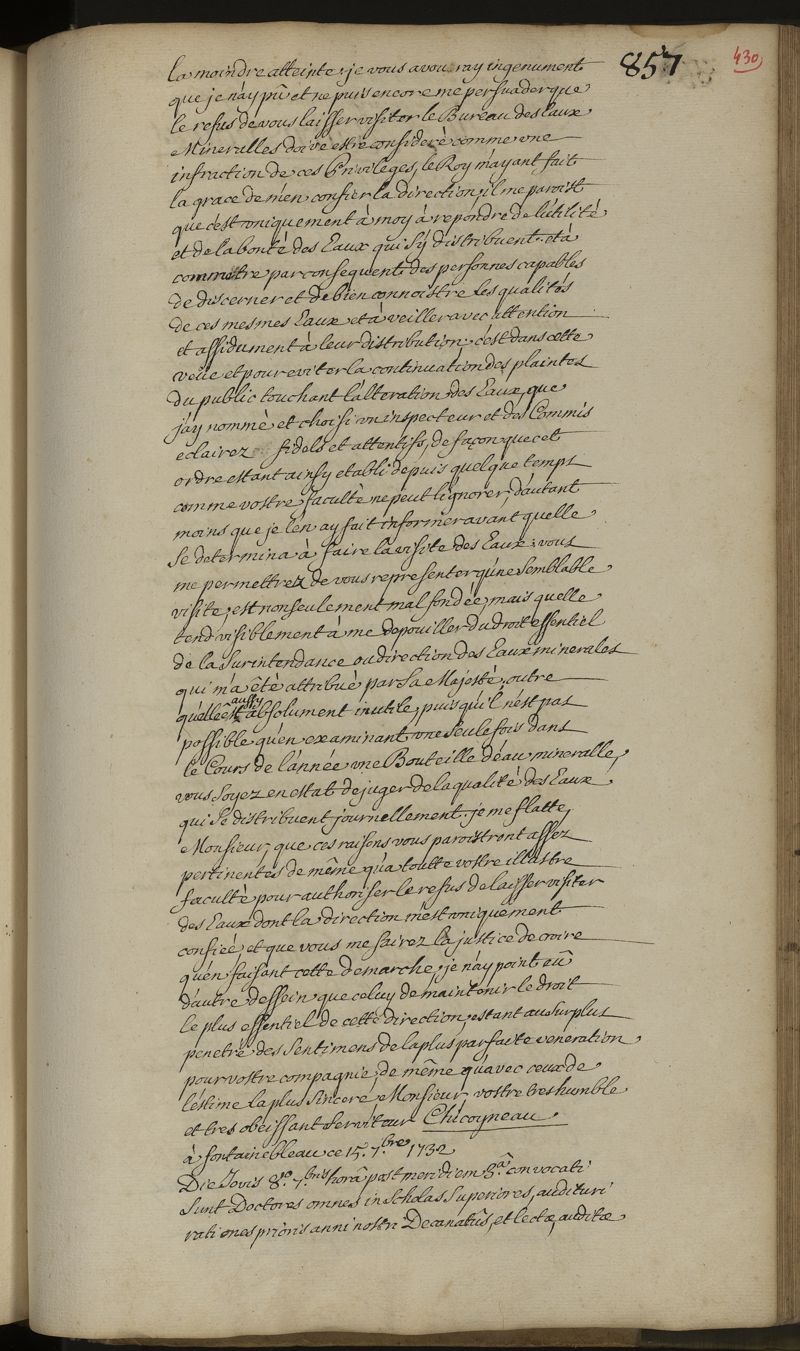 857
430
la moindre atteinte, je vous avou ray ingenument
que je n'ay pû et ne puis encore me persuader que
le refus de vous laisser visiter le Bureau des Eaux
Mineralles doive estre consideré comme une
infraction de ces Privileges, le Roy m'ayant fait
la grace de m'en confier la direction, il me paroist
que c'est uniquement à moy à repondre de l'utilité
et de la bonté des Eaux qui s'y distribuent et à
commettre par consequent des personnes capables
de discerner et de bien connoistre les qualités
de ces mesmes Eaux et à veiller avec attention
et assidument à leur distribution, c'est dans cette
veüe et pour eviter la continuation des plaintes
du public touchant l'alteration des Eaux, que
j'ay nommé et choisi un inspecteur et des Commis
eclairez fidels et attentifs, de façon que cet
ordre estant ainsy etabli depuis quelque temps
comme vostre faculté ne peut l'ignorer, d'autant
moins que je l'en ay fait informer avant quelle
se determina à faire la visite des Eaux; vous
me permettrez de vous representer qu'une semblable
visite, est non seulement mal fondée, mais quelle
tend visiblement à me depouiller du droit essentiel
de la Surintendance ou direction des Eaux minerales
qui m'a êté attribué par Sa Majesté, outre
qu'elle est aussy absolument inutile, puis qu'il n'est pas
possible qu'en examinant une seule fois dans
le Cours de l'année une Bouteille d'eau mineralle,
vous soyez en estat de juger de la qualité des Eaux
qui se distribuent journellement. je me flatte,
Monsieur, que ces raisons vous paroistront assez
pertinentes de même qu'a toutte vostre illustre
faculté pour authoriser le refus de laisser visiter
des Eaux dont la direction m'est uniquement
confieé et que vous me fairez la justice de croire
qu'en faisant cette demarche, je n'ay point aû
d'autre dessein que celuy de maintenir le droit
le plus essentiel de cette direction, estant au Surplus
penetré des Sentimens de la plus parfaite veneration
pour vostre compagnie, de même qu'avec ceux de
l'estime la plus sincere Monsieur, vostre tres humble
et tres obeissant serviteur Chicoyneau.
à fontainebleau ce 15. 7.bre 1732
Die Jovis 8.º 7.bris horâ post meridiem 3.ª convocati
sunt Doctores omnes in Scholas Superiores, audituri
rationes prioris anni nostri Decanatûs, et lectæ, auditæ